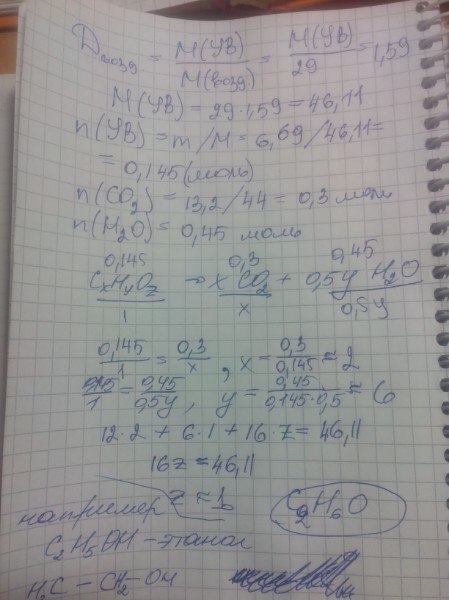 Dвозд = M(УВ) / M(возд) = M(УВ) / 29 = 1,59
M(УВ) = 29·1,59 = 46,11
n(УВ) = m/M = 6,69/46,11=
= 0,145(моль)
n(CO2) = 13,2/44 = 0,3 моль
n(H2O) = 0,45 моль
0,145 0,3 0,45
CxHyOz → x CO2 + 0,5y H2O
1 x 0,5y
0,145/1 = 0,3/x , x = 0,3/0,145 ≈ 2
0,145/1 = 0,45/0,5y , y = 0,45/0,145·0,5 ≈ 6
12·2 + 6·1 + 16·z = 46,11
16z ≈ 46,11
z ≈ 1 C2H6O
например
C2H5OH – этанол
H3C – CH2 – OH